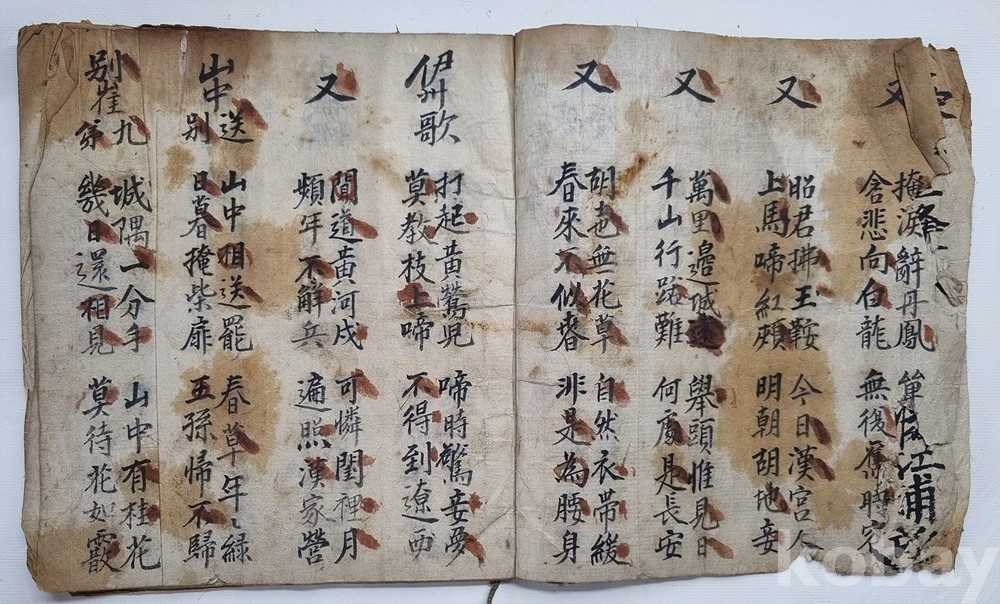 又
掩淚辭丹鳳
含悲向白龍
無後舊時容
又
昭君拂王鞍
上馬啼紅頰
今日漢宮人
明朝胡地妾
又
萬里邊城遠
千山行路難
擧頭惟見日
何處是長安
又
胡地無花草
春來不似春
自然衣帶緩
非是為腰身
伊州歌
打起黃鶯児
莫教枝上啼
啼時驚妾夢
不得到遼西
又
聞道黃河戍
頻年不解兵
可憐閨裡月
遍照漢家營
山中送別
山中相送罷
日暮掩柴扉
春草年〻綠
王孫帰不歸
別崔九弟
城隅一分手
幾日還相見
山中有桂花
莫待花如霰
kobay